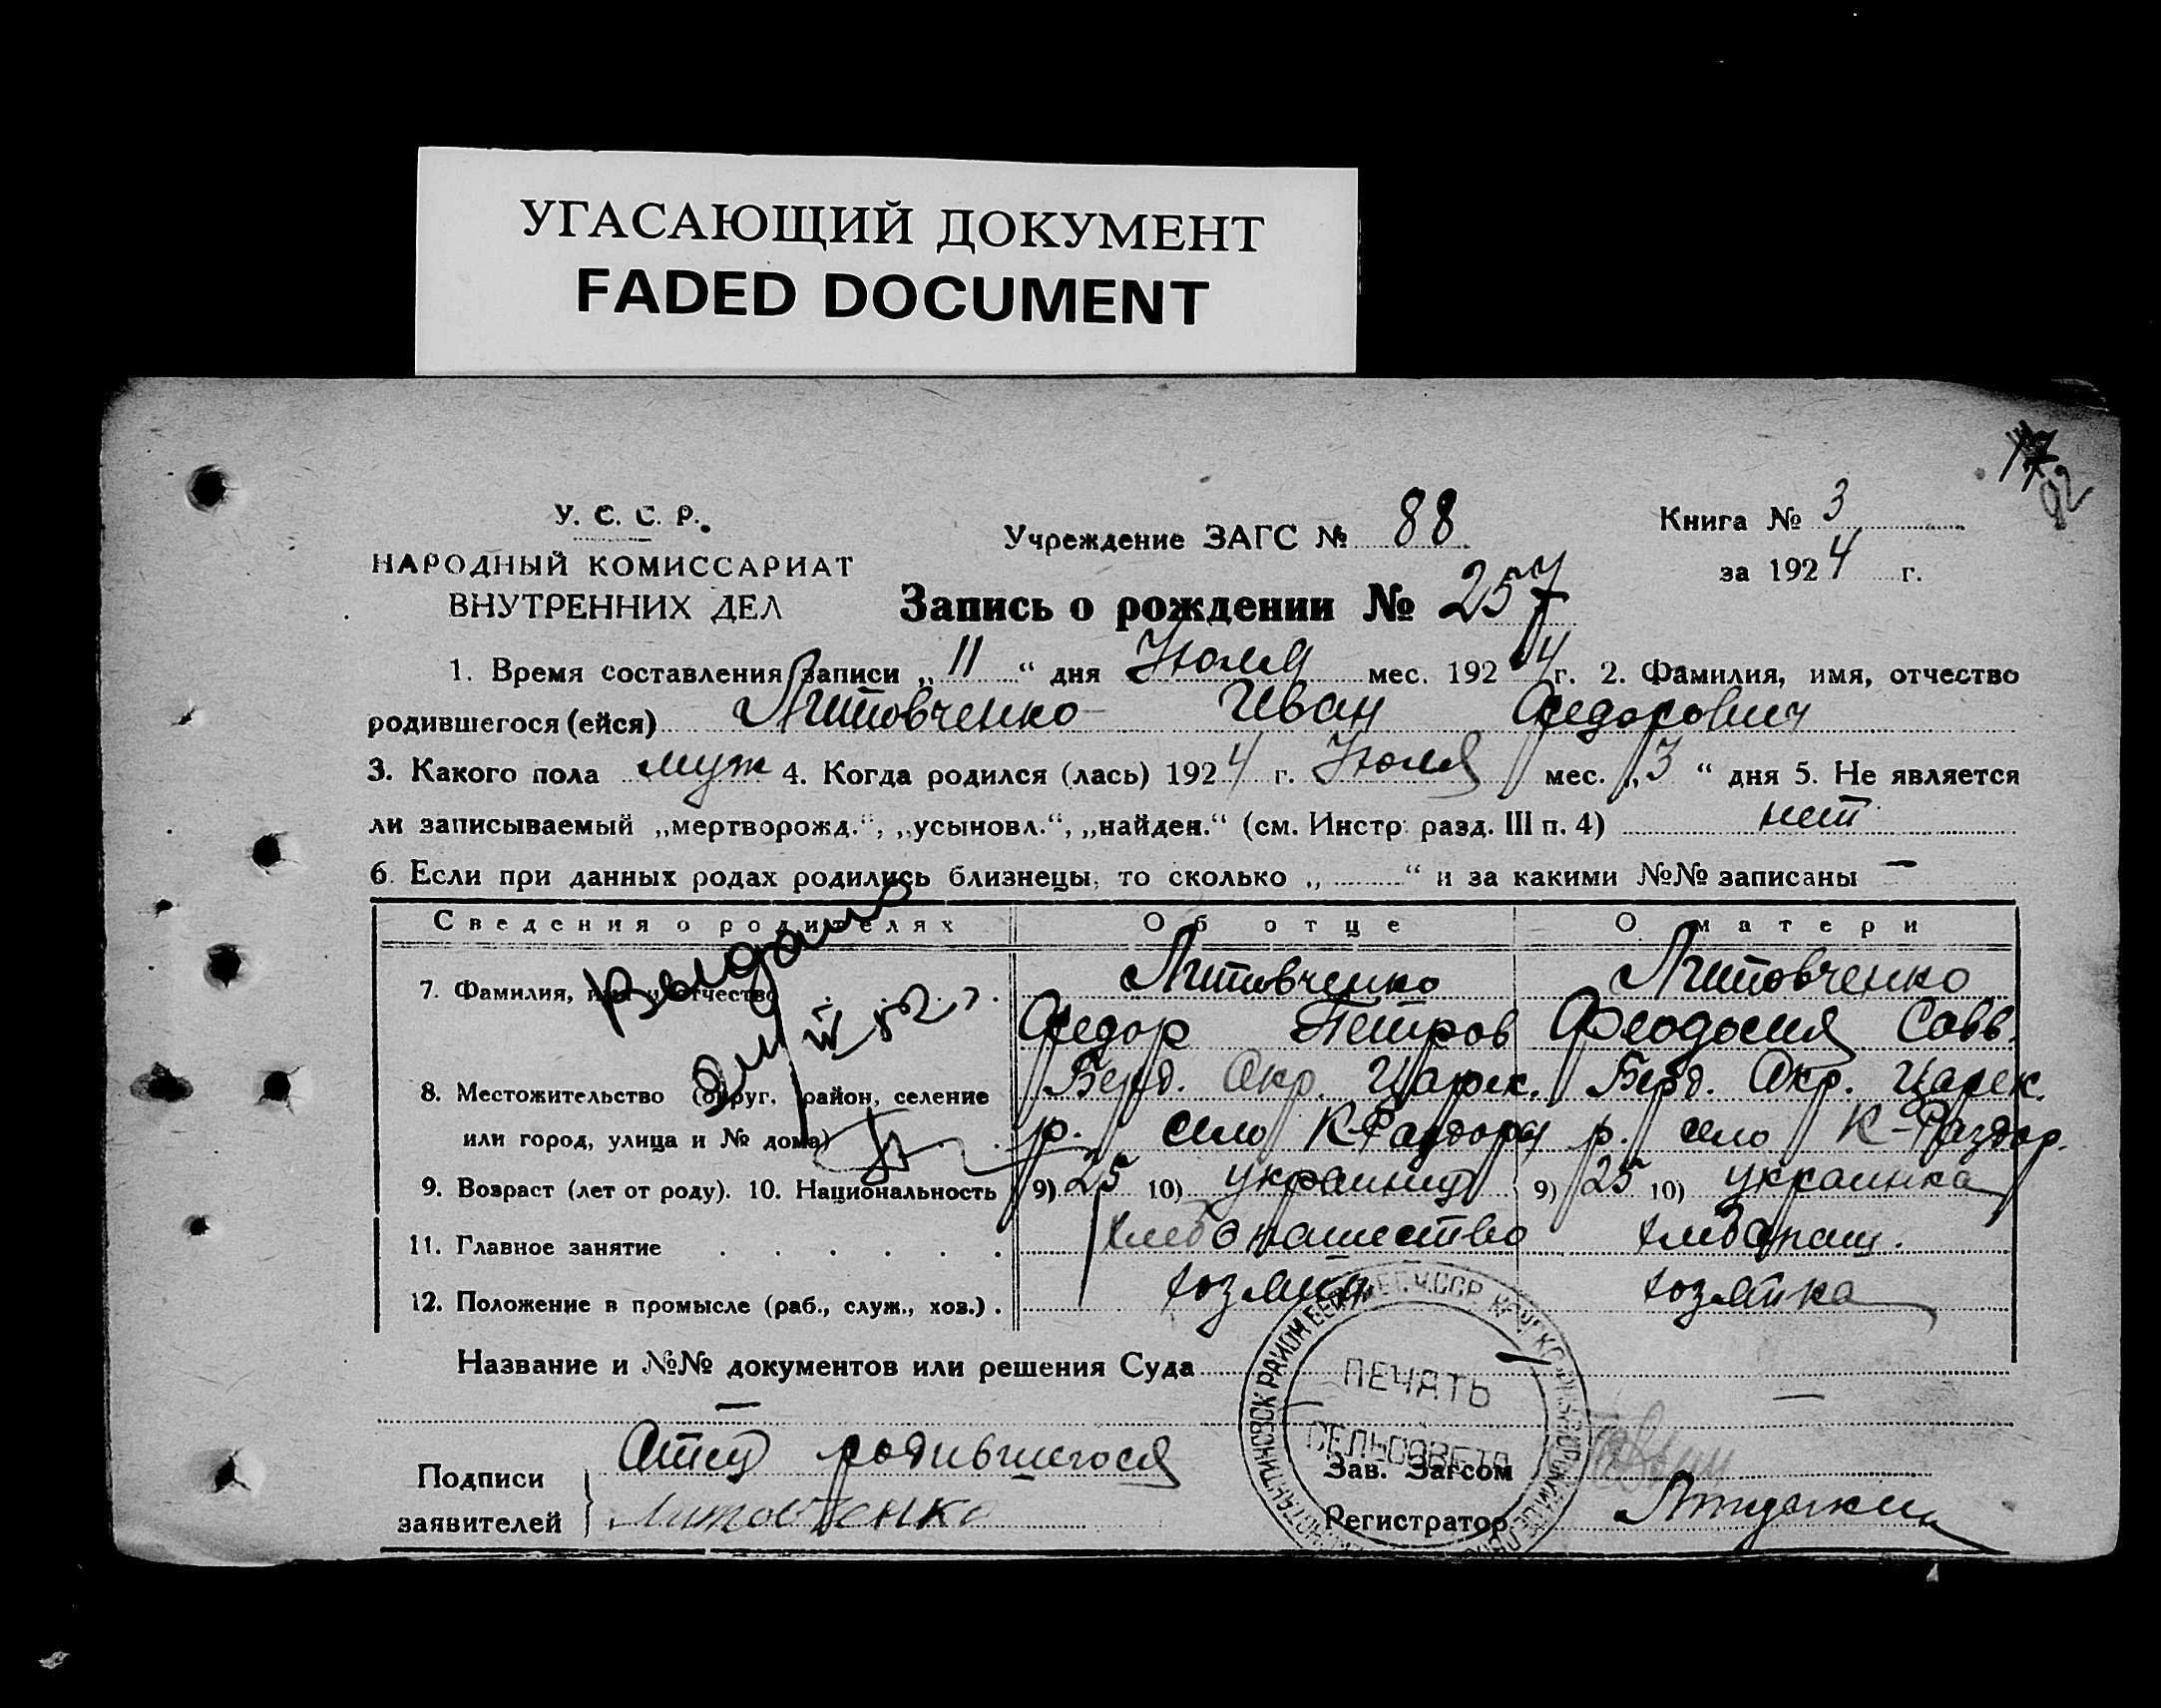 УГАСАЮЩИЙ ДОКУМЕНТ
FADED DOCUMENT
У. С. С. Р.
НАРОДНЫЙ КОМИССАРИАТ
ВНУТРЕННИХ ДЕЛ
Учреждение ЗАГС № 88
Книга № 3
за 1924 г.
Запись о рождении № 257
1. Время составления записи „11“ дня Июля мес. 1924 г. 2. Фамилия, имя, отчество
родившегося (ейся) Литовченко Иван Федорович
3. Какого пола муж 4. Когда родился (лась) 1924 г. Июля мес. „3“ дня 5. Не является
ли записываемый „мертворожд.“, „усыновл.“, „найден.“ (см. Инстр. разд. III п. 4) нет
6. Если при данных родах родились близнецы, то сколько „ “ и за какими №№ записаны —
Сведения о родителях Об отце О матери
7. Фамилия, имя и отчество Литовченко Литовченко
Федор Петров Феодосия Савв.
8. Местожительство (округ. район, селение Берд. Окр. Царек. Берд. Окр. Царек.
или город, улица и № дома) р. село К-Раздоры р. село К-Раздор.
9. Возраст (лет от роду). 10. Национальность 9) 25 10) украинец 9) 25 10) украинка
11. Главное занятие хлебопашество хлебопаш.
12. Положение в промысле (раб., служ., хоз.) хозяин хозяйка
Название и №№ документов или решения Суда —
ПЕЧАТЬ
СЕЛЬСОВЕТА
Подписи заявителей Отец родившегося
Литовченко
Зав. Загсом
Регистратор